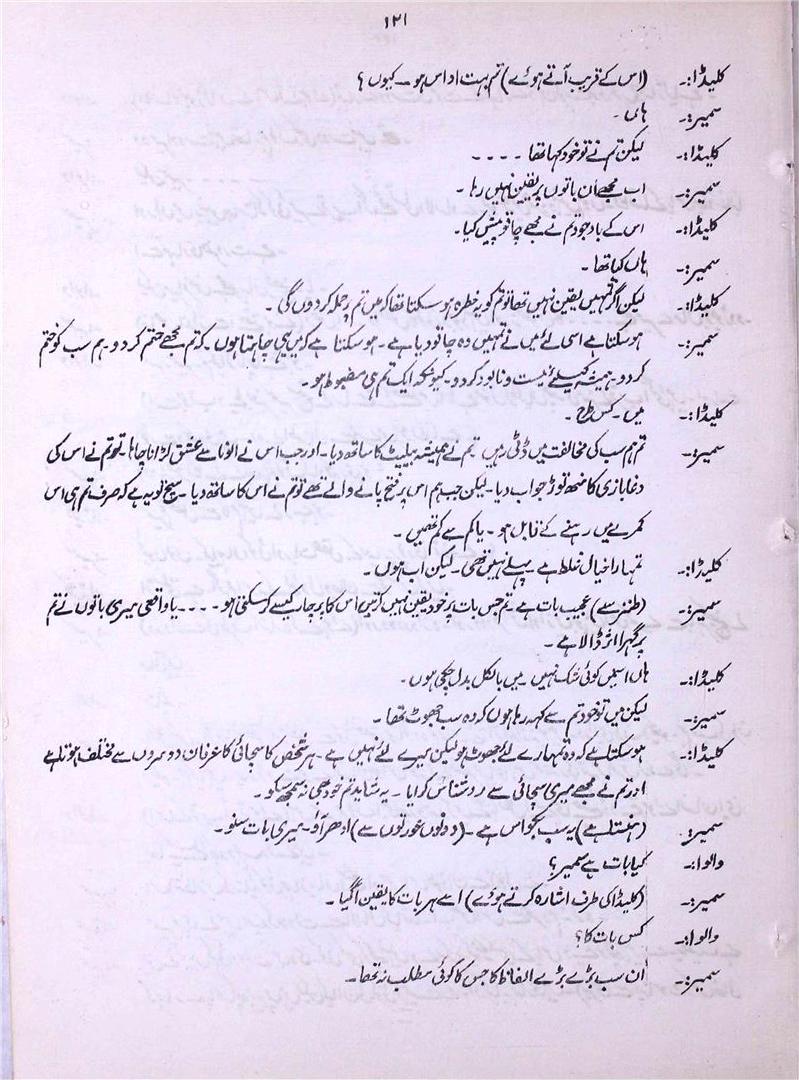 ۱۲۱
کلیڈا:۔ (اس کے قریب آتے ہوئے) تم بہت اداس ہو۔ کیوں؟
سمیر:۔ ہاں۔
کلیڈا:۔ لیکن تم نے تو خود کہا تھا ۔۔۔۔
سمیر:۔ اب مجھے ان باتوں پر یقین نہیں رہا۔
کلیڈا:۔ اس کے باوجود تم نے مجھے چاقو پیش کیا۔
سمیر:۔ ہاں کیا تھا۔
کلیڈا:۔ لیکن اگر تمہیں یقین نہیں تھا تو تم کو یہ خطرہ ہو سکتا تھا کہ میں تم پر حملہ کر دوں گی۔
سمیر:۔ ہو سکتا ہے اسی لئے میں نے تمہیں وہ چاقو دیا ہے۔ ہو سکتا ہے کہ میں یہی چاہتا ہوں۔ کہ تم مجھے ختم کر دو۔ ہم سب کو ختم
کر دو۔ ہمیشہ کیلئے نیست و نابود کر دو۔ کیونکہ ایک تم ہی مضبوط ہو۔
کلیڈا:۔ میں۔ کس طرح۔
سمیر:۔ تم ہم سب کی مخالفت میں ڈٹی رہیں تم نے ہمیشہ ہیلیٹ کا ساتھ دیا۔ اور جب اس نے الونا سے عشق لڑانا چاہا۔ تو تم نے اس کی
دغا بازی کا منھ توڑ جواب دیا۔ لیکن جب ہم اس پر فتح پانے والے تھے تو تم نے اس کا ساتھ دیا۔ سچ تو یہ ہے کہ صرف تم ہی اس
کمرے میں رہنے کے قابل ہو۔ یا کم سے کم تھیں۔
کلیڈا:۔ تمہارا خیال غلط ہے۔ پہلے نہیں تھی۔ لیکن اب ہوں۔
سمیر:۔ (طنز سے) عجیب بات ہے۔ تم جس بات پر خود یقین نہیں کرتیں اس کا پرچار کیسے کر سکتی ہو ۔۔۔۔ یا واقعی میری باتوں نے تم
پر گہرا اثر ڈالا ہے۔
کلیڈا:۔ ہاں اسمیں کوئی شک نہیں میں بالکل بدل چکی ہوں۔
سمیر:۔ لیکن میں تو خود تم سے کہہ رہا ہوں کہ وہ سب جھوٹ تھا۔
کلیڈا:۔ ہو سکتا ہے کہ وہ تمہارے لئے جھوٹ ہو لیکن میرے لئے نہیں ہے۔ ہر شخص کا سچائی کا عرفان دوسروں سے مختلف ہوتا ہے
اور تم نے مجھے میری سچائی سے روشناس کرایا۔ یہ شاید تم خود بھی نہ سمجھ سکو۔
سمیر:۔ (ہنستا ہے) یہ سب بکواس ہے۔ (دونوں عورتوں سے) ادھر آؤ۔ میری بات سنو۔
والوا:۔ کیا بات ہے سمیر؟
سمیر:۔ (کلیڈا کی طرف اشارہ کرتے ہوئے) اسے ہر بات کا یقین آ گیا۔
والوا:۔ کس بات کا؟
سمیر:۔ ان سب بڑے بڑے الفاظ کا جس کا کوئی مطلب نہ تھا۔